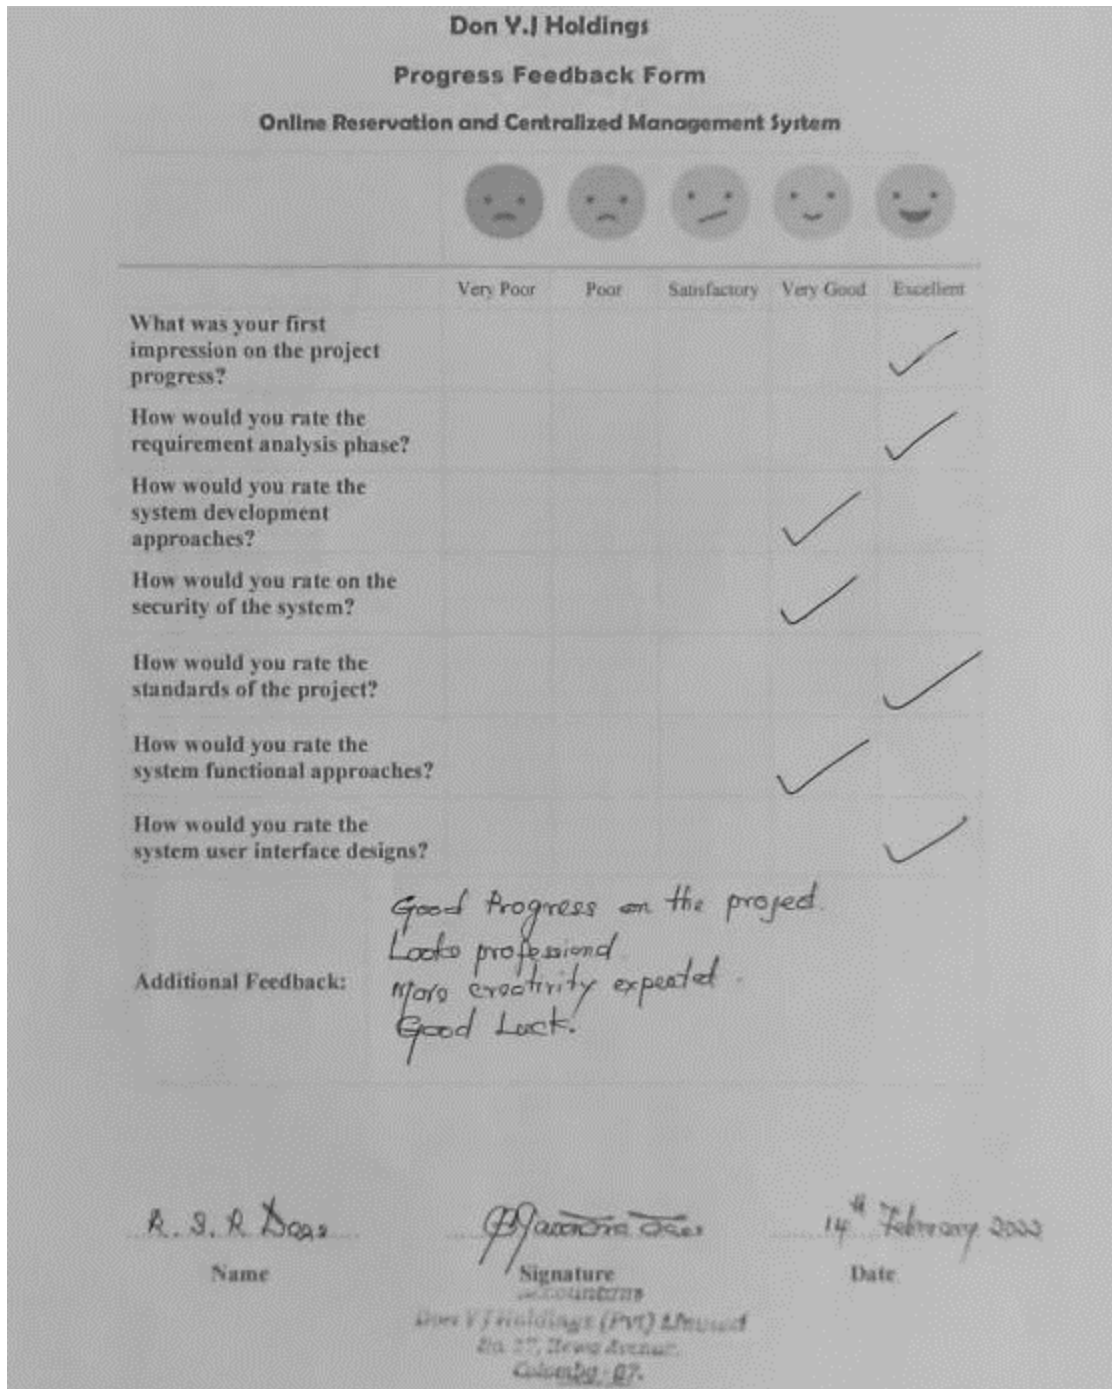 Don Y.J Holdings
Progress Feedback Form
Online Reservation and Centralized Management System
Very Poor Poor Satisfactory Very Good Excellent
What was your first
impression on the project
progress?
How would you rate the
requirement analysis phase?
How would you rate the
system development
approaches?
How would you rate on the
security of the system?
How would you rate the
standards of the project?
How would you rate the
system functional approaches?
How would you rate the
system user interface designs?
Good Progress on the project.
Looks professional
Additional Feedback:
More creativity expected.
Good Luck.
R. S. R 14th February 2022
Name Signature Date
Don Y J Holdings (Pvt) Limited
Colombo - 07.